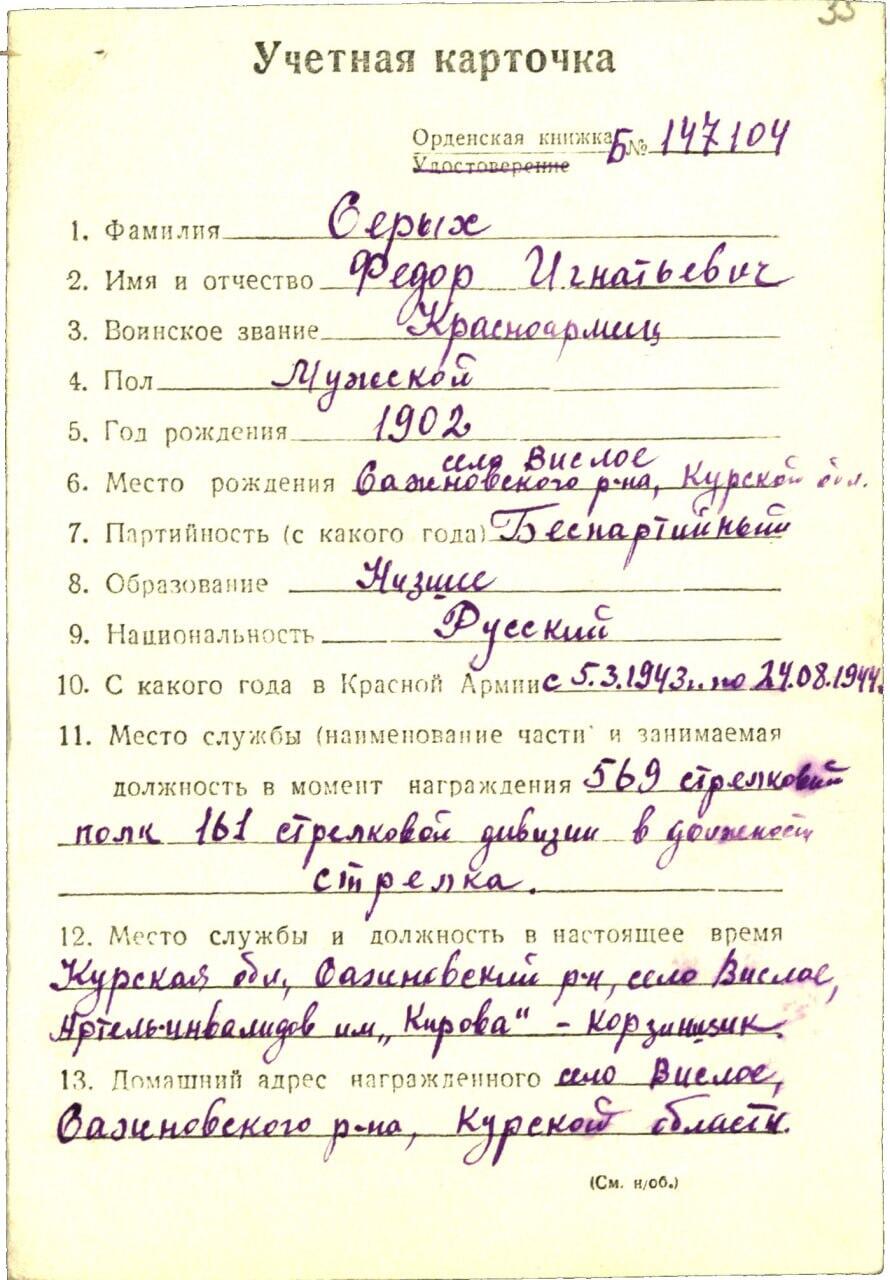 33
Учетная карточка
Орденская книжка Б№ 147104
Удостоверение
1. Фамилия Серых
2. Имя и отчество Федор Игнатьевич
3. Воинское звание Красноармиц
4. Пол Мужской
5. Год рождения 1902
село Вислое
6. Место рождения Сажиновского р-на, Курской обл.
7. Партийность (с какого года) Беспартийный
8. Образование Низшее
9. Национальность Русский
10. С какого года в Красной Армии с 5.3.1943г. по 24.08.1944г.
11. Место службы (наименование части и занимаемая
должность в момент награждения 569 стрелковий
полк 161 стрелковой дивизии в должности
стрелка.
12. Место службы и должность в настоящее время
Курская обл, Сажиновский р-н, село Вислое,
Артель-инвалидов им „Кирова“ - Корзинщик.
13. Домашний адрес награжденного село Вислое,
Сажиновского р-на, Курской области.
(См. н/об.)